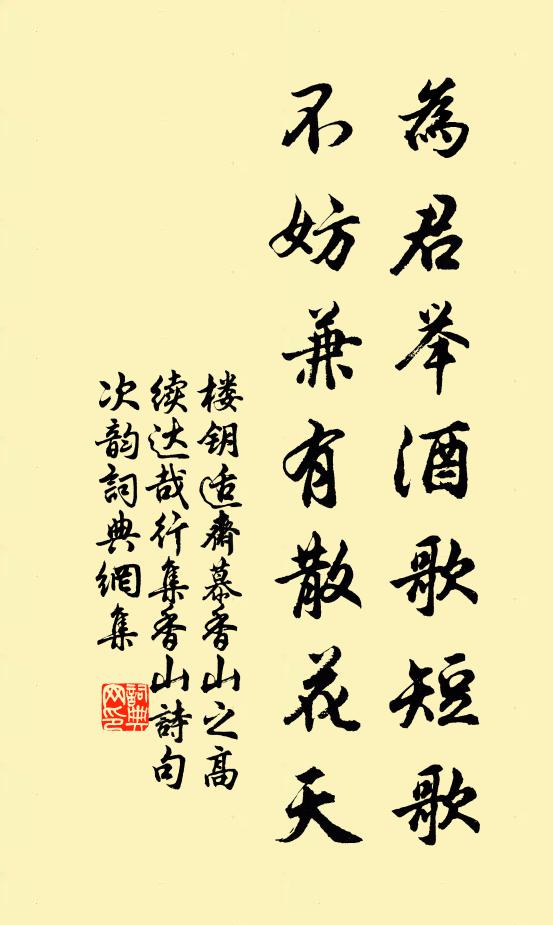 為君举酒歌短歌
不妨兼有散花天
楼钥适斋慕香山之高
续达哉行集香山詩句
次韵詞典網集
詞典网印